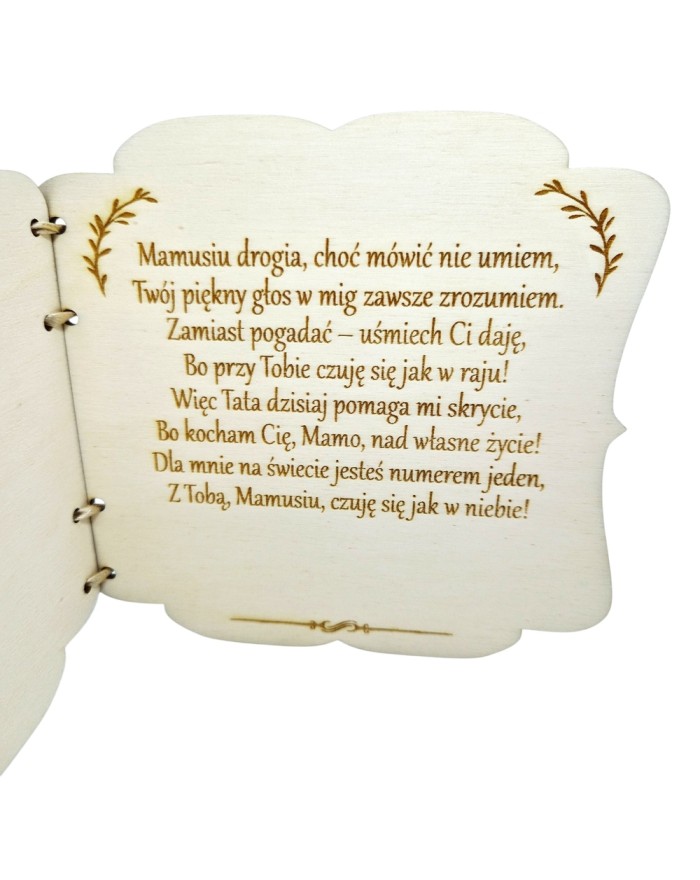 Mamusiu drogia, choć mówić nie umiem,
Twój piękny głos w mig zawsze zrozumiem.
Zamiast pogadać – uśmiech Ci daję,
Bo przy Tobie czuję się jak w raju!
Więc Tata dzisiaj pomaga mi skrycie,
Bo kocham Cię, Mamo, nad własne życie!
Dla mnie na świecie jesteś numerem jeden,
Z Tobą, Mamusiu, czuję się jak w niebie!